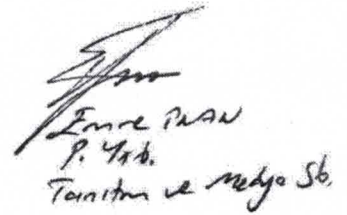 Emre İNAN
P. Yzb.
Tanıtım ve Medya Şb.